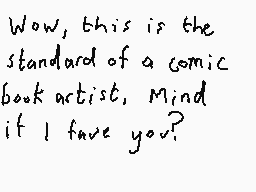 Wow, this is the
standard of a comic
book artist. Mind
if I fave you?